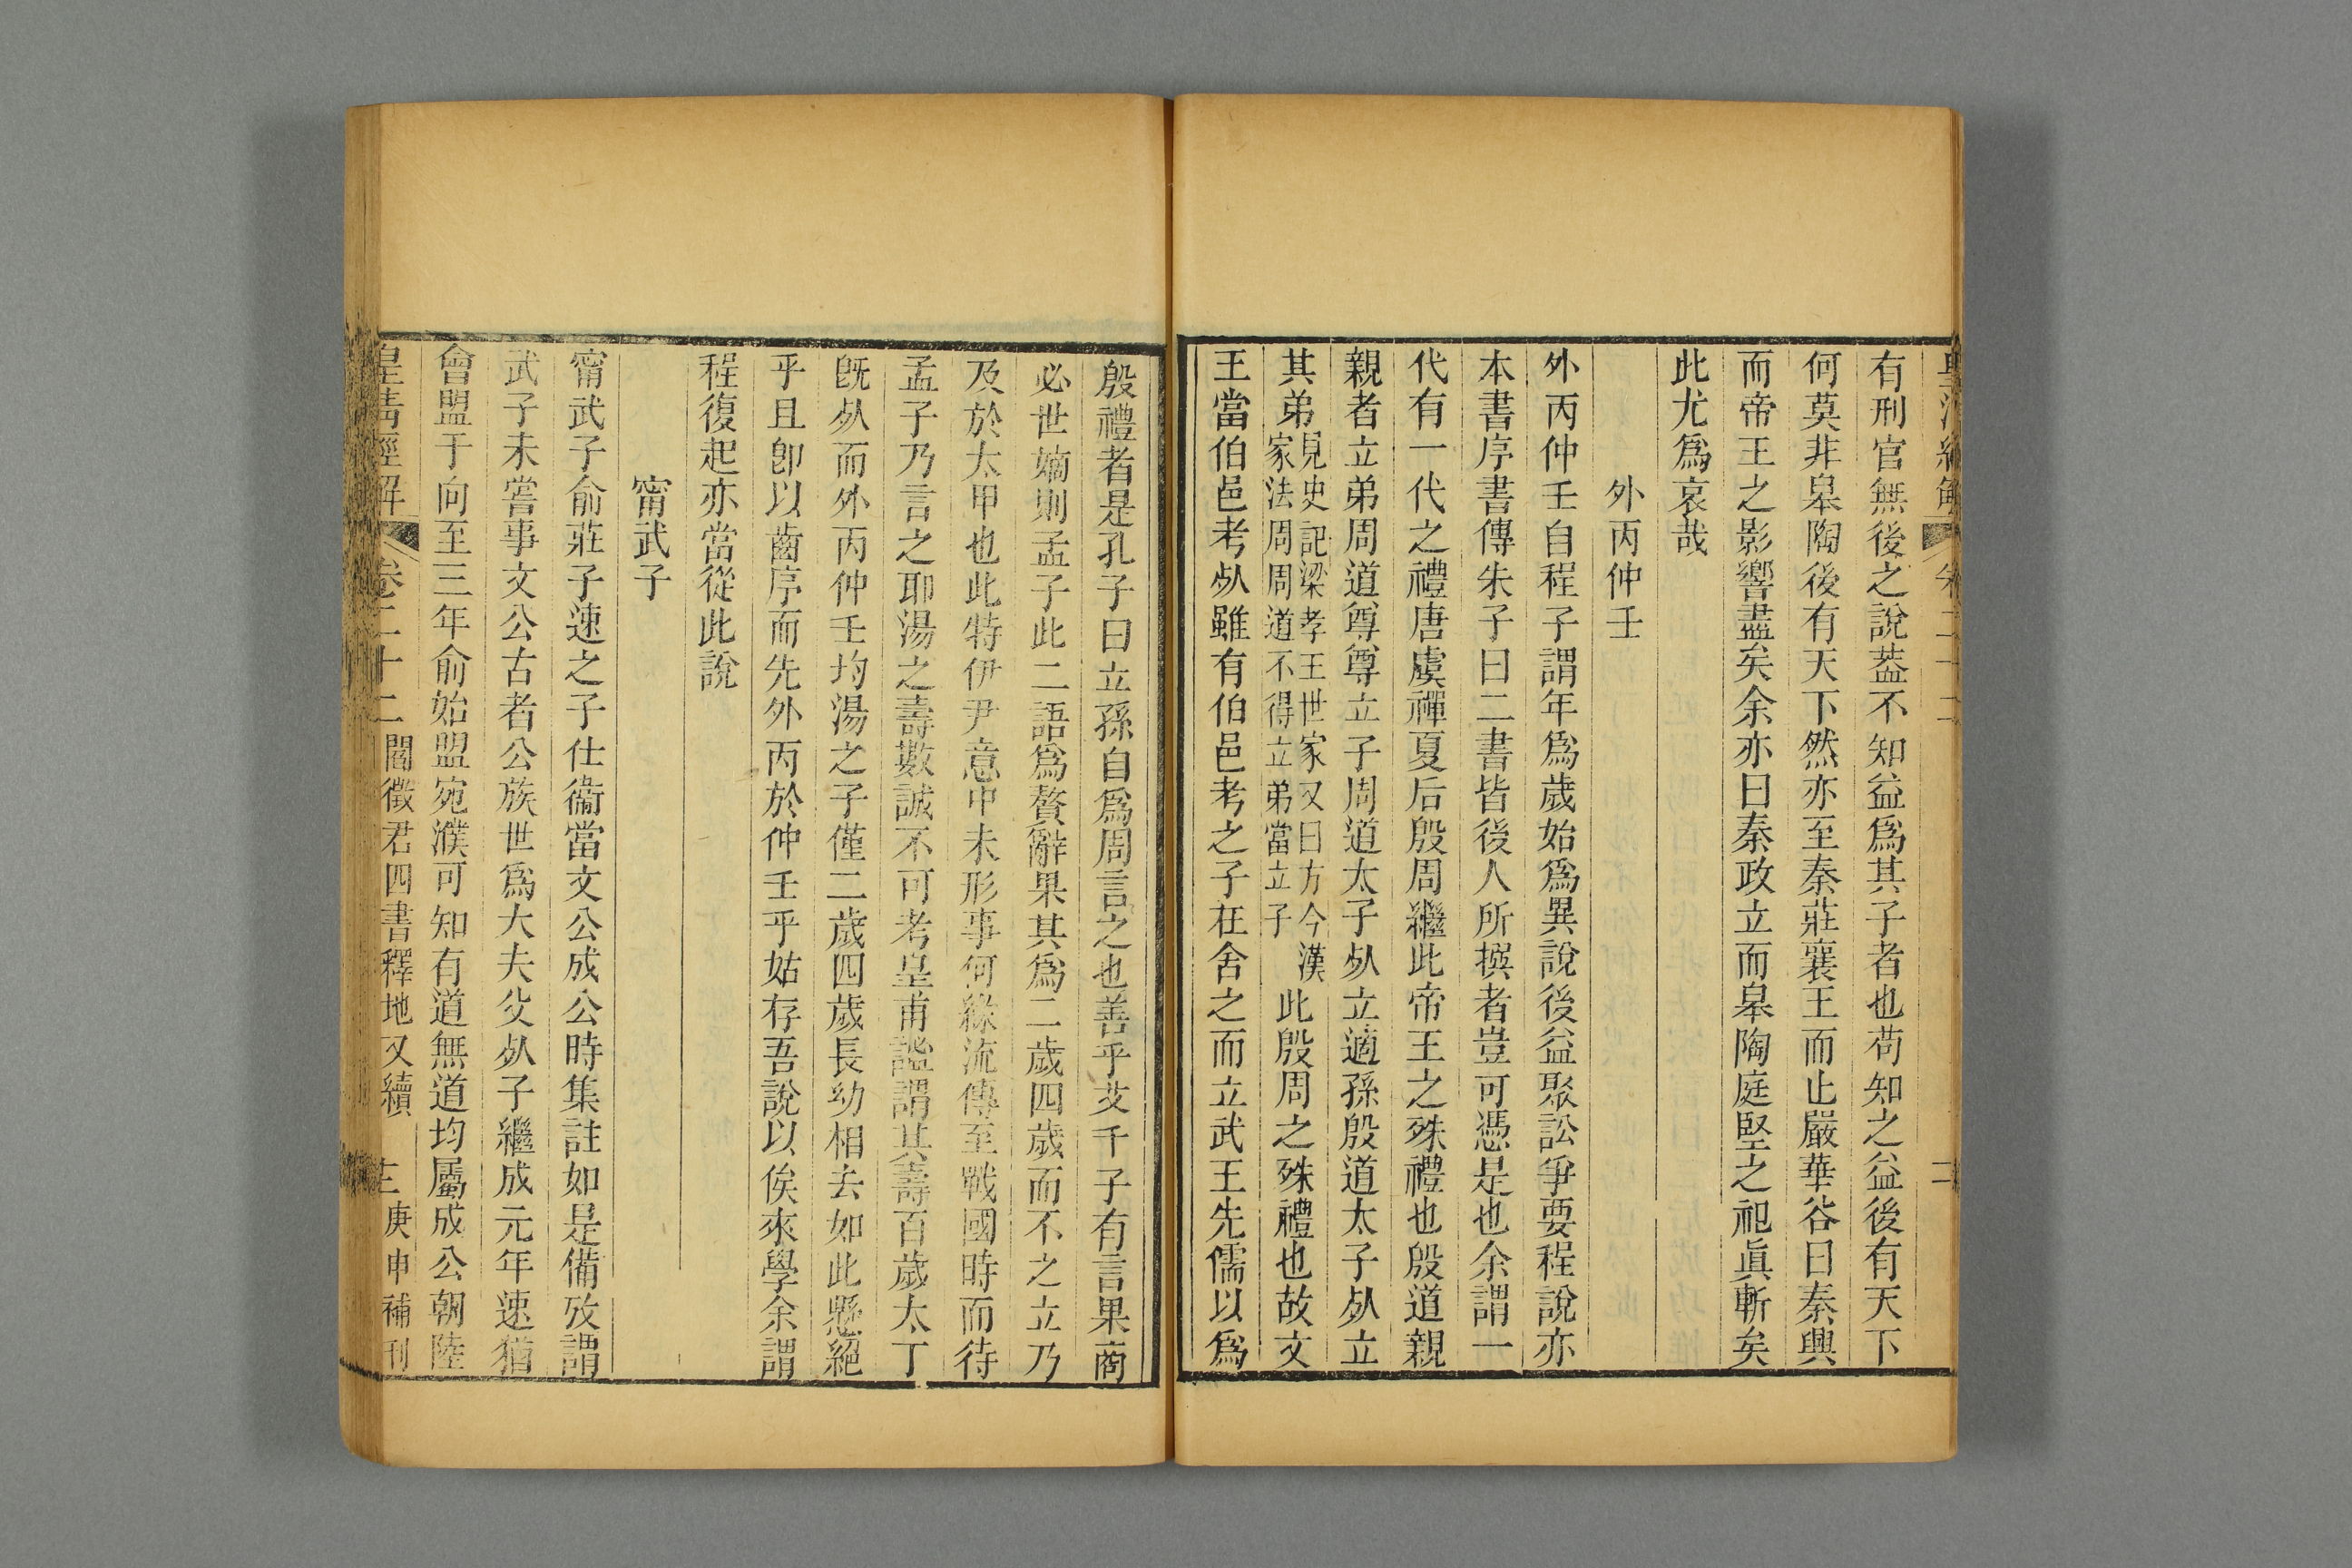 有刑官無後之說葢不知益爲其子者也苟知之益後有天下
何莫非皋陶後有天下然亦至秦莊襄王而止嚴華谷曰秦興
而帝王之影響盡矣余亦曰秦政立而皋陶庭堅之祀眞斬矣
此尤爲哀哉
外丙仲壬
外丙仲壬自程子謂年爲歲始爲異說後益聚訟爭要程說亦
本書序書傳朱子曰二書皆後人所撰者豈可憑是也余謂一
代有一代之禮唐虞禪夏后殷周繼此帝王之殊禮也殷道親
親者立弟周道尊尊立子周道太子𣦸立適孫殷道太子𣦸立
其弟見史記梁孝王世家又曰方今漢家法周周道不得立弟當立子此殷周之殊禮也故文
王當伯邑考𣦸雖有伯邑考之子在舍之而立武王先儒以爲
殷禮者是孔子曰立孫自爲周言之也善乎艾千子有言果商
必世嫡則孟子此二語爲贅辭果其爲二歲四歲而不之立乃
及於太甲也此特伊尹意中未形事何緣流傳至戰國時而待
孟子乃言之耶湯之壽數誠不可考皇甫謐謂其壽百歲太丁
旣𣦸而外丙仲壬均湯之子僅二歲四歲長幼相去如此懸絕
乎且卽以齒序而先外丙於仲壬乎姑存吾說以俟來學余謂
程復起亦當從此說
甯武子
甯武子俞莊子速之子仕衞當文公成公時集註如是備攷謂
武子未嘗事文公古者公族世爲大夫父𣦸子繼成元年速猶
會盟于向至三年俞始盟宛濮可知有道無道均屬成公朝陸
皇清經解 卷二十二 閻徵君四書釋地又續 庚申補刊